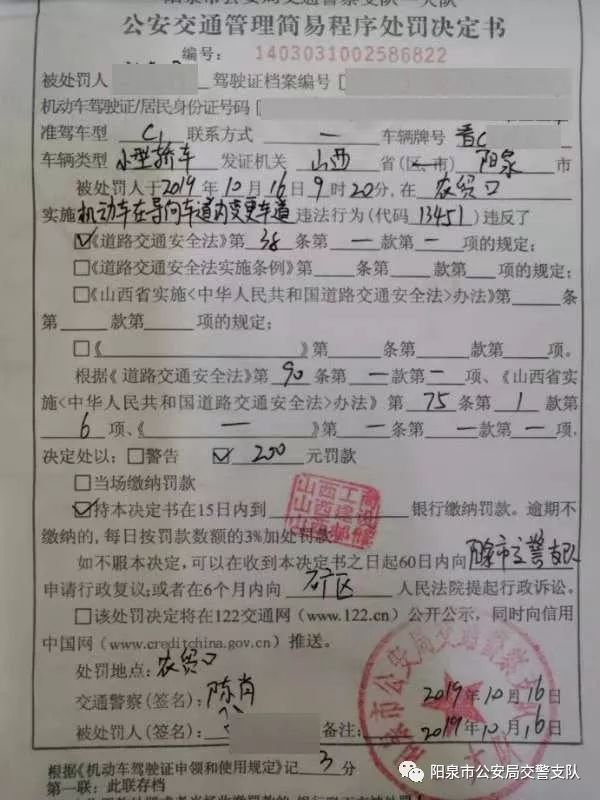 阳泉市公安局交通警察支队一大队
公安交通管理简易程序处罚决定书
编号：1403031002586822
被处罚人 驾驶证档案编号
机动车驾驶证/居民身份证号码
准驾车型 C1 联系方式 一 车辆牌号 晋C
车辆类型 小型轿车 发证机关 山西 省(区、市) 阳泉 市
被处罚人于2019年10月16日9时20分,在 农贸口
实施机动车在导向车道内变更车道违法行为(代码13451)违反了
☑《道路交通安全法》第 38 条第 一 款第 一 项的规定;
□《道路交通安全法实施条例》第 条第 款第 项的规定;
□《山西省实施<中华人民共和国道路交通安全法>办法》第 条
第 款第 项的规定;
□《 》第 条第 款第 项。
根据《道路交通安全法》第 90 条第 一 款第 一 项、《山西省实
施<中华人民共和国道路交通安全法>办法》第 75 条第 1 款第
6 项、《 一 》第 一 条第 一 款第 一 项,
决定处以:□警告 ☑ 200 元罚款
□当场缴纳罚款
☑持本决定书在15日内到 银行缴纳罚款。逾期不
缴纳的,每日按罚款数额的3%加处罚款。
如不服本决定,可以在收到本决定书之日起60日内向阳泉市交警支队
申请行政复议;或者在6个月内向 矿区 人民法院提起行政诉讼。
□该处罚决定将在122交通网(www.122.cn)公开公示,同时向信用
中国网(www.creditchina.gov.cn)推送。
处罚地点:农贸口
交通警察(签名):陈肖 2019年10月16日
被处罚人(签名): 备注: 2019年10月16日
根据《机动车驾驶证申领和使用规定》记 3 分
第一联：此联存档
阳泉市公安局交警支队